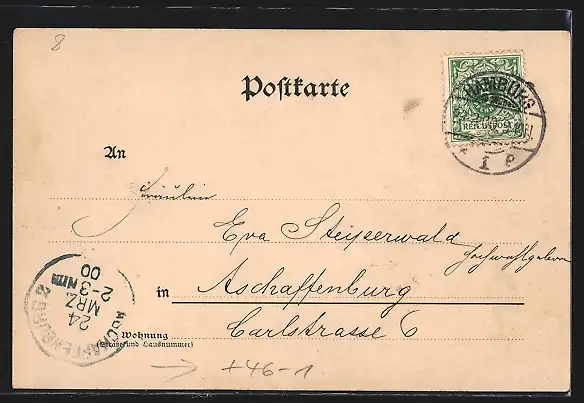 8
Postkarte
HAMBURG
REICHSPOST
1 P
An
Fräulein
Eva Steigerwald
Hochwohlgeboren
in Aschaffenburg
Wohnung
(Straße und Hausnummer)
Carlstrasse 6
ASCHAFFENBURG 2
24
MRZ
2-3 Nm
00
→ +46-1